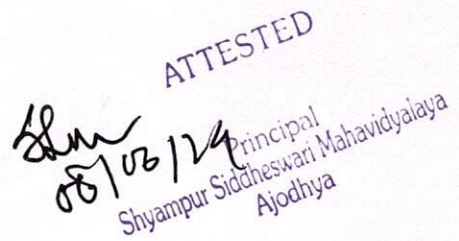 ATTESTED
Principal
Shyampur Siddheswari Mahavidyalaya
Ajodhya